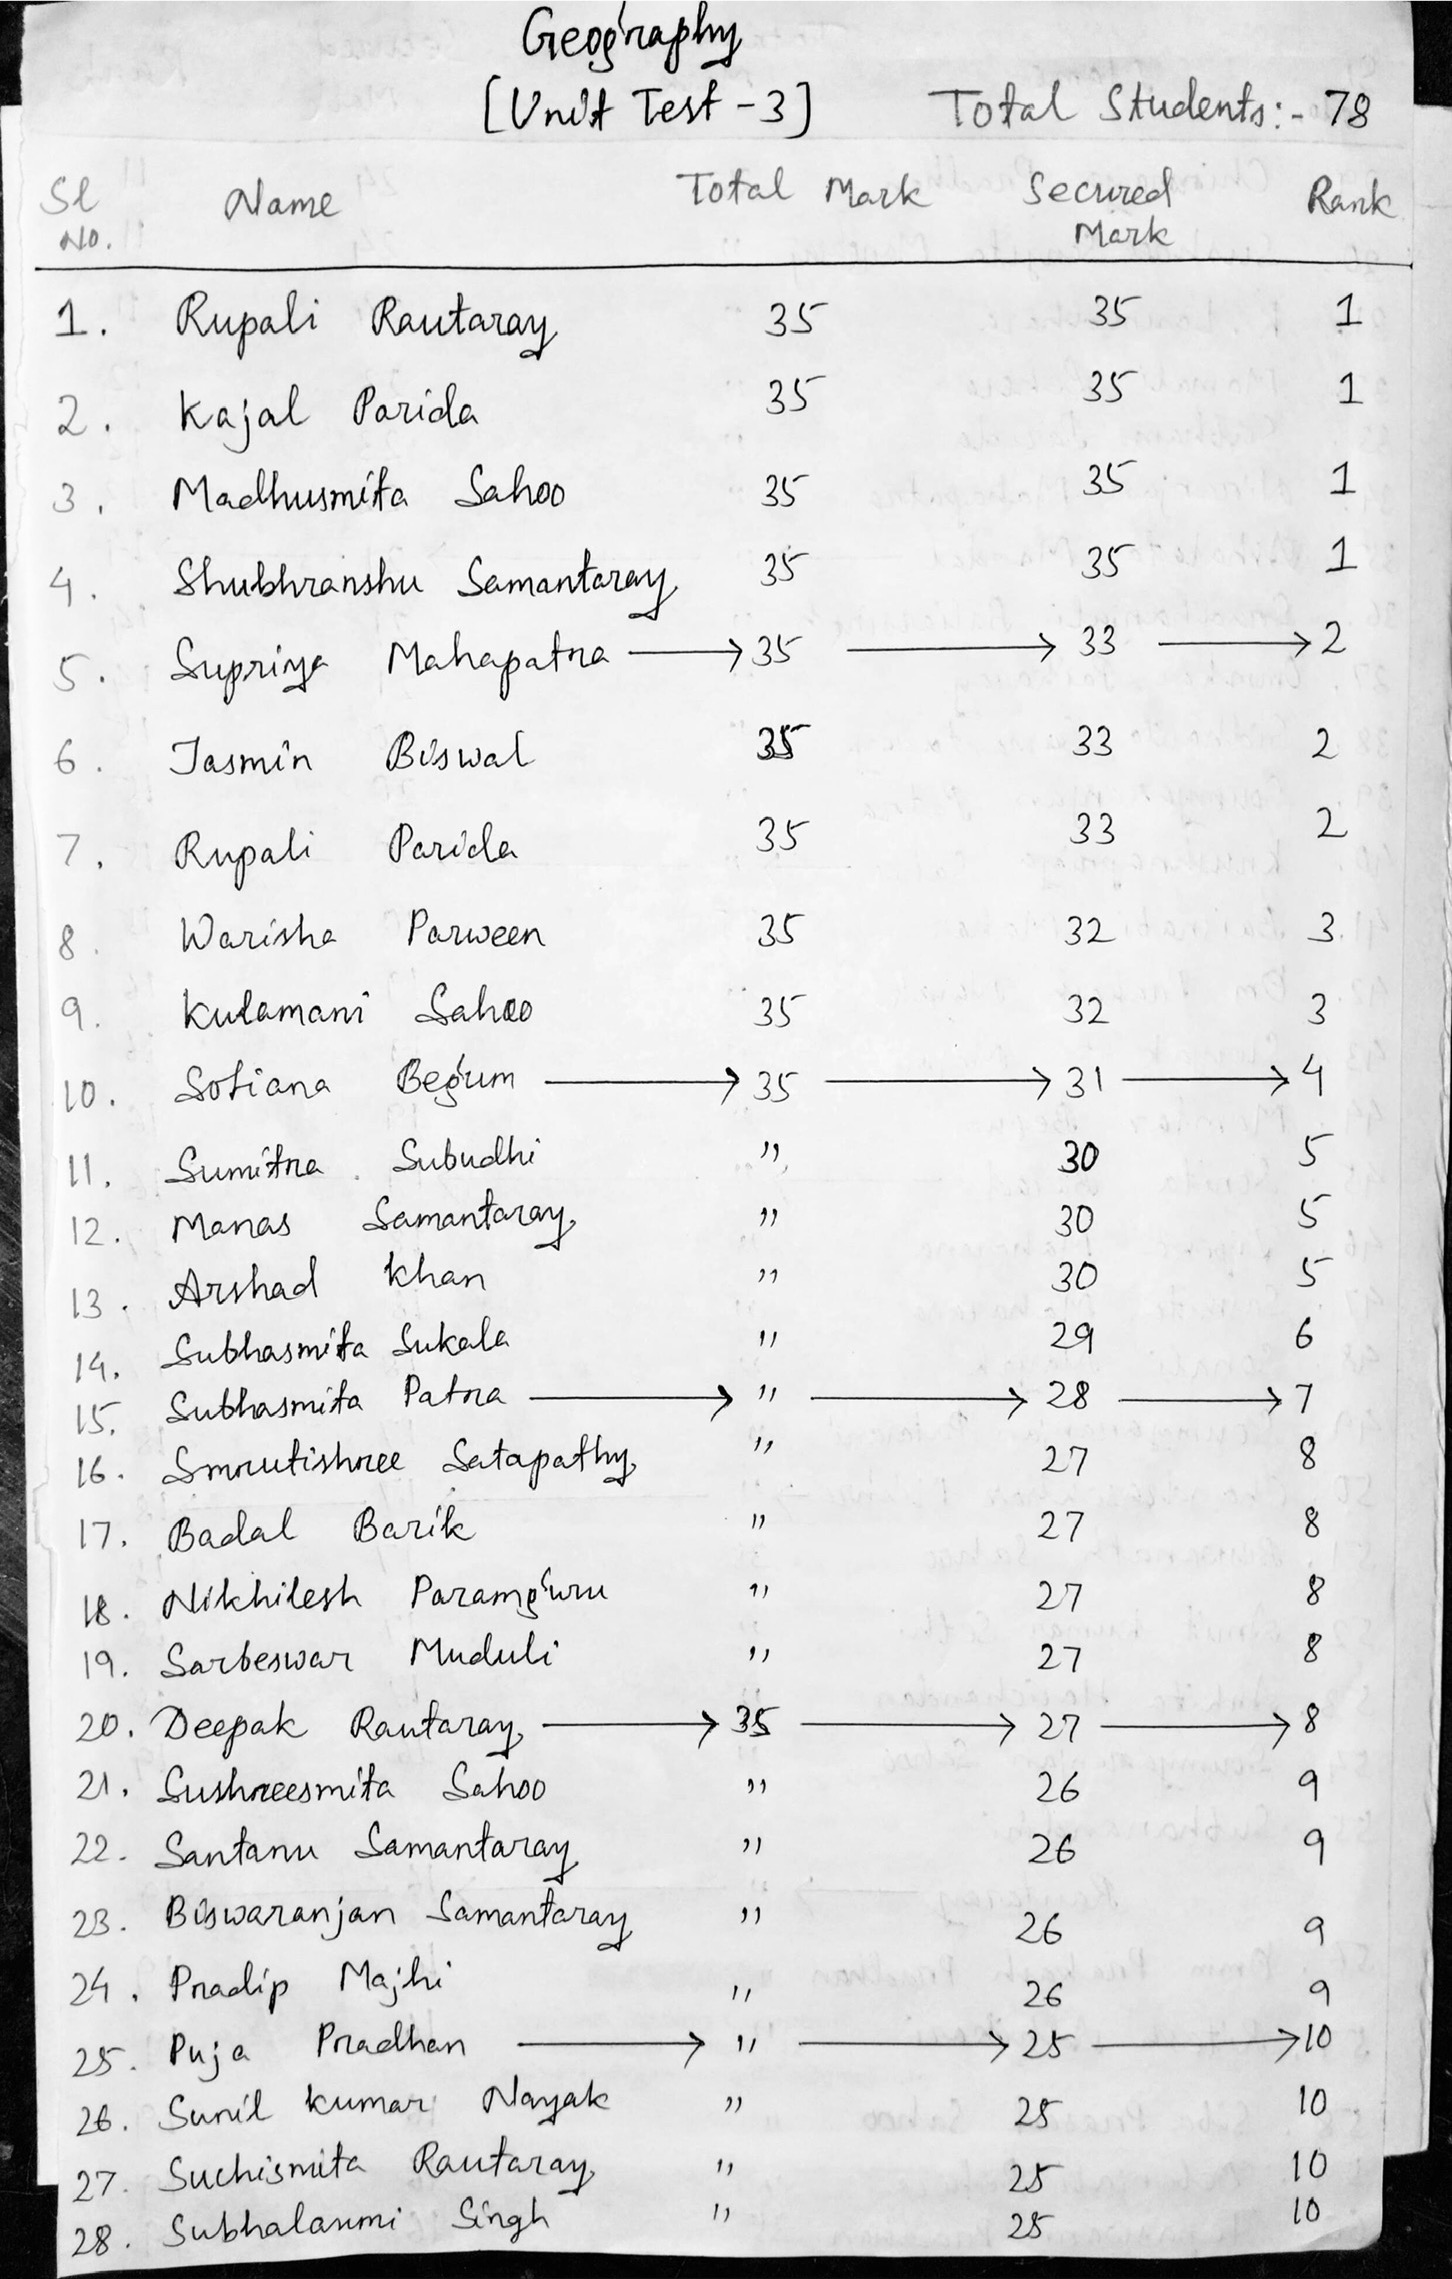 Geography
[Unit Test - 3] Total Students:- 78
Sl No. Name Total Mark Secured Mark Rank
1. Rupali Rautaray 35 35 1
2. Kajal Parida 35 35 1
3. Madhusmita Sahoo 35 35 1
4. Shubhranshu Samantaray 35 35 1
5. Supriya Mahapatra → 35 → 33 → 2
6. Jasmin Biswal 35 33 2
7. Rupali Parida 35 33 2
8. Warisha Parween 35 32 3
9. Kulamani Sahoo 35 32 3
10. Sofiana Begum → 35 → 31 → 4
11. Sumitra Subudhi " 30 5
12. Manas Samantaray " 30 5
13. Arshad Khan " 30 5
14. Subhasmita Sukala " 29 6
15. Subhasmita Patra → " → 28 → 7
16. Smrutishree Satapathy " 27 8
17. Badal Barik " 27 8
18. Nikhilesh Paramguru " 27 8
19. Sarbeswar Muduli " 27 8
20. Deepak Rautaray → 35 → 27 → 8
21. Sushreesmita Sahoo " 26 9
22. Santanu Samantaray " 26 9
23. Biswaranjan Samantaray " 26 9
24. Pradip Majhi " 26 9
25. Puja Pradhan → " → 25 → 10
26. Sunil Kumar Nayak " 25 10
27. Suchismita Rautaray " 25 10
28. Subhalaxmi Singh " 25 10